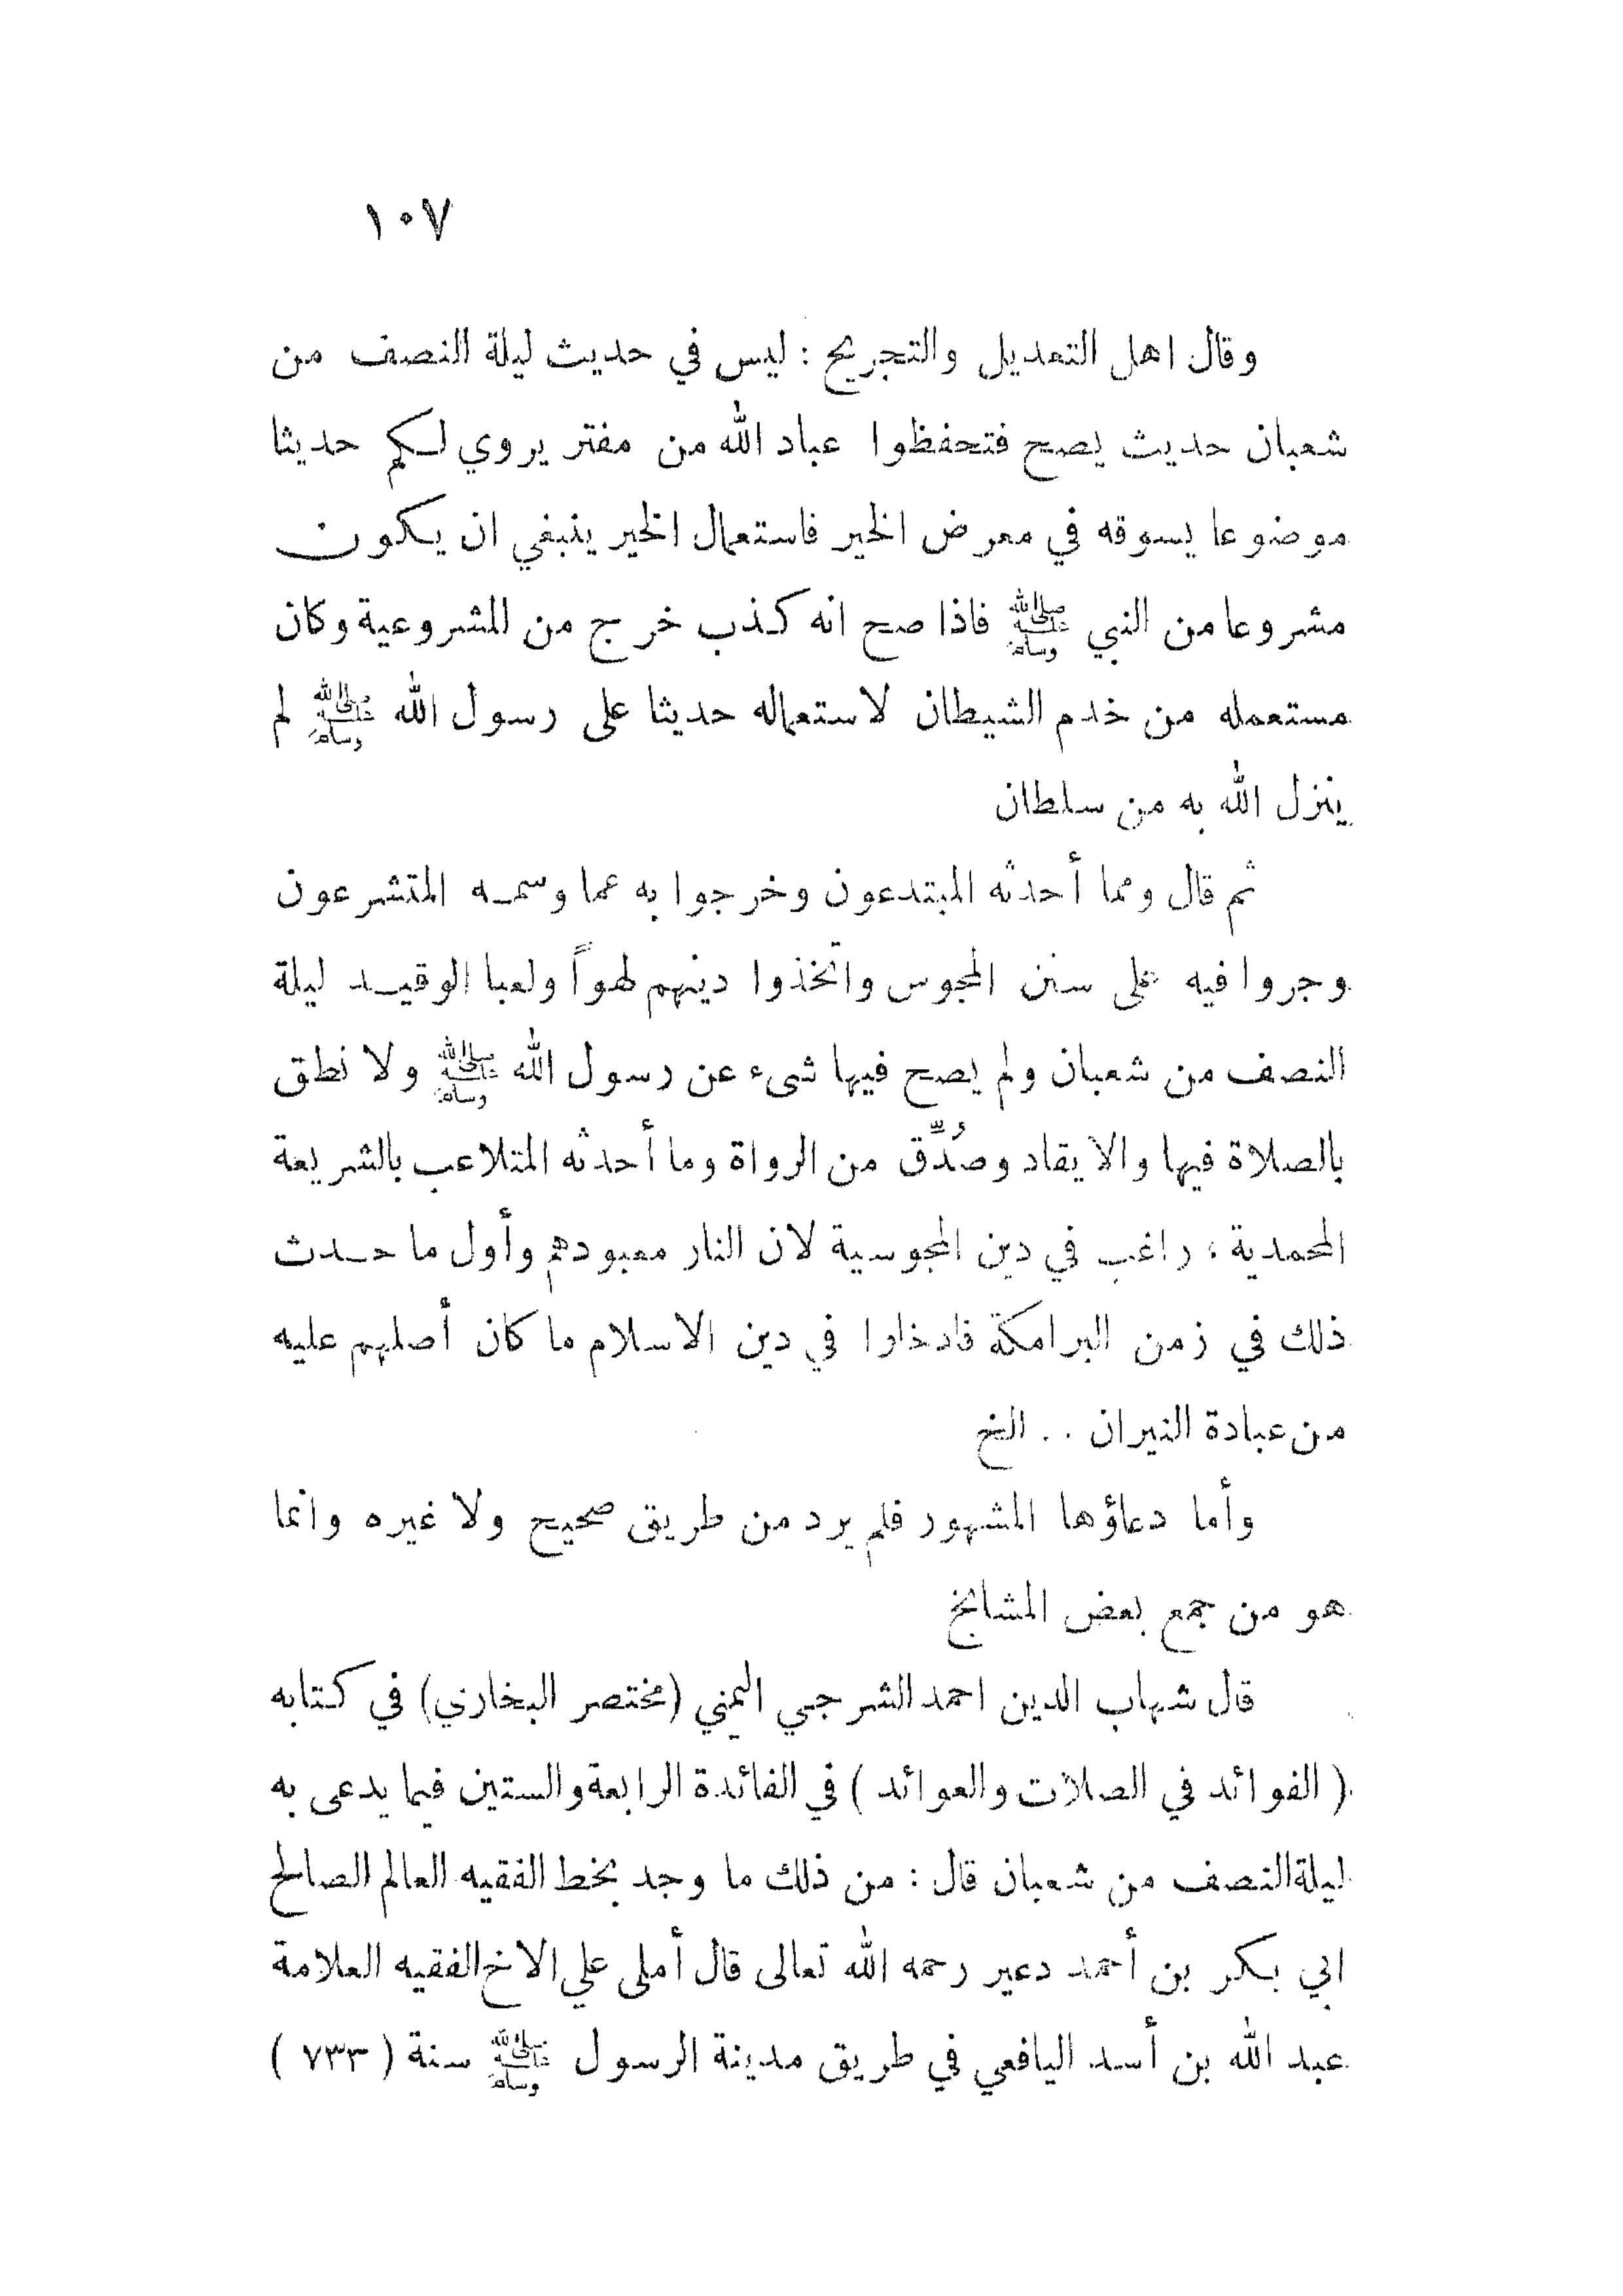 ١٠٧
وقال اهل التعديل والتجريح : ليس في حديث ليلة النصف من
شعبان حديث يصح فتحفظوا عباد الله من مفتر يروي لكم حديثا
موضوعا يسوقه في معرض الخير فاستعمال الخير ينبغي ان يكون
مشروعا من النبي ﷺ فاذا صح انه كذب خرج من المشروعية وكان
مستعمله من خدم الشيطان لاستعماله حديثا على رسول الله ﷺ لم
ينزل الله به من سلطان
ثم قال ومما أحدثه المبتدعون وخرجوا به عما وسمه المتشرعون
وجروا فيه على سنن المجوس واتخذوا دينهم لهواً ولعبا الوقيد ليلة
النصف من شعبان ولم يصح فيها شىء عن رسول الله ﷺ ولا نطق
بالصلاة فيها والايقاد وصُدِّق من الرواة وما أحدثه المتلاعب بالشريعة
المحمدية ، راغب في دين المجوسية لان النار معبودهم وأول ما حدث
ذلك في زمن البرامكة فادخلوا في دين الاسلام ما كان أصلهم عليه
من عبادة النيران . . الخ
وأما دعاؤها المشهور فلم يرد من طريق صحيح ولا غيره وانما
هو من جمع بعض المشايخ
قال شهاب الدين احمد الشرجي اليمني (مختصر البخاري) في كتابه
( الفوائد في الصلات والعوائد ) في الفائدة الرابعة والستين فيما يدعى به
ليلة النصف من شعبان قال : من ذلك ما وجد بخط الفقيه العالم الصالح
ابي بكر بن أحمد دعير رحمه الله تعالى قال أملى علي الاخ الفقيه العلامة
عبد الله بن أسد اليافعي في طريق مدينة الرسول ﷺ سنة ( ٧٣٣ )